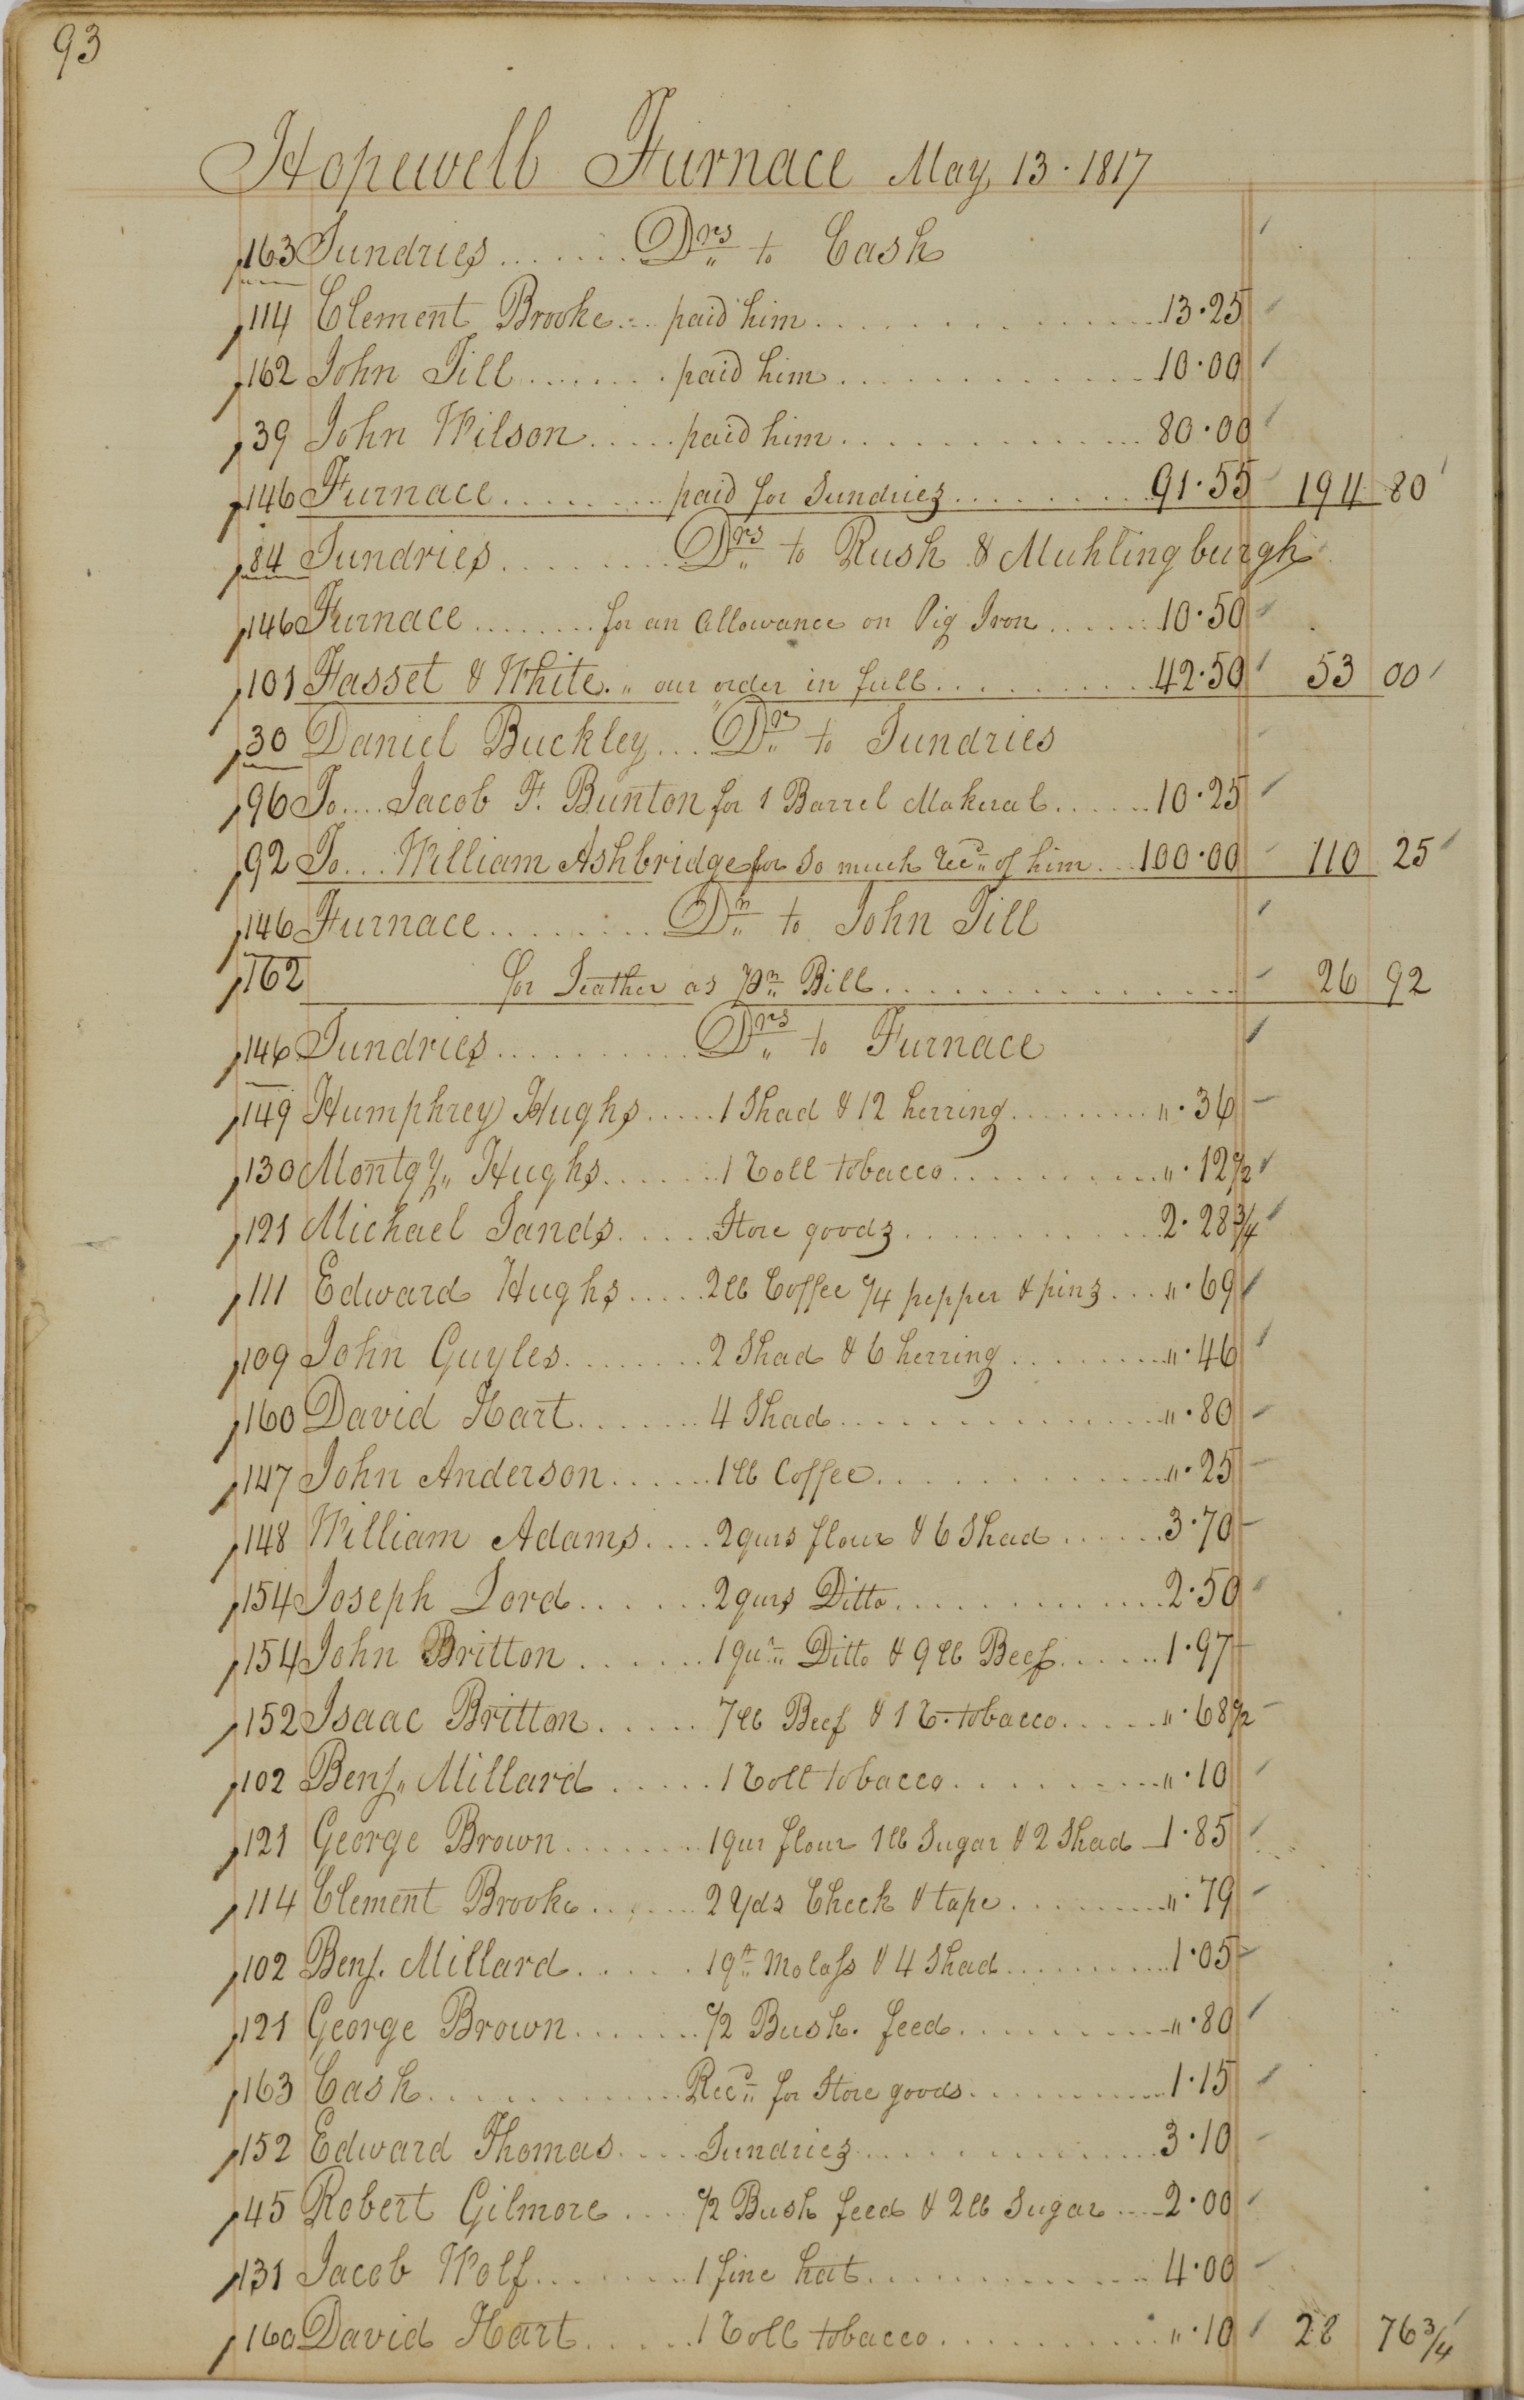 93
Hopewell Furnace May 13 · 1817
163 Sundries ....... Drs to Cash
114 Clement Brooke... paid him ............... 13·25
162 John Till ........ paid him ............. 10·00
39 John Wilson ..... paid him ............. 80·00
146 Furnace ........ paid for Sundries ........ 91·55 194 80
84 Sundries ........ Drs to Rush & Muhlingburgh
146 Furnace ........ for an Allowance on Pig Iron ..... 10·50
101 Fasset & White. " our order in full ......... 42·50 53 00
30 Daniel Buckley ... Dr to Sundries
96 To.... Jacob F. Bunton for 1 Barrel Makeral ...... 10·25
92 To... William Ashbridge for so much Recd of him ... 100·00 110 25
146 Furnace ........ Dr to John Till
162 for Leather as Pr Bill ............... 26 92
146 Sundries .......... Drs to Furnace
149 Humphrey Hughs ..... 1 Shad & 12 herring ......... "·36
130 Montgy" Hughs ...... 1 Roll tobacco .......... "·12 1/2
121 Michael Sands ..... Store goods ............ 2·28 3/4
111 Edward Hughs ..... 2 lb Coffee 1/4 pepper & pins ... "·69
109 John Guyles ........ 2 Shad & 6 herring ......... "·46
160 David Hart ....... 4 Shad .............. "·80
147 John Anderson ...... 1 lb Coffee ............ "·25
148 William Adams .... 2 qurs flour & 6 Shad ...... 3·70
154 Joseph Lord ...... 2 qurs Ditto ............. 2·50
154 John Britton ...... 1 qur" Ditto & 9 lb Beef ...... 1·97
152 Isaac Britton ..... 7 lb Beef & 1 R. tobacco ..... "·68 1/2
102 Benj" Millard ..... 1 Roll tobacco ......... "·10
121 George Brown ....... 1 qur flour 1 lb Sugar & 2 Shad 1·85
114 Clement Brooke ...... 2 Yds Check & tape ........ "·79
102 Benj. Millard ...... 1 qt Molass & 4 Shad ......... 1·05
121 George Brown ....... 1/2 Bush. feed ......... "·80
163 Cash ............ Recd" for Store goods ......... 1·15
152 Edward Thomas .... Sundries ............ 3·10
45 Robert Gilmore .... 1/2 Bush feed & 2 lb Sugar .... 2·00
131 Jacob Wolf ....... 1 fine hat ............ 4·00
160 David Hart ..... 1 Roll tobacco .......... "·10 28 76 3/4